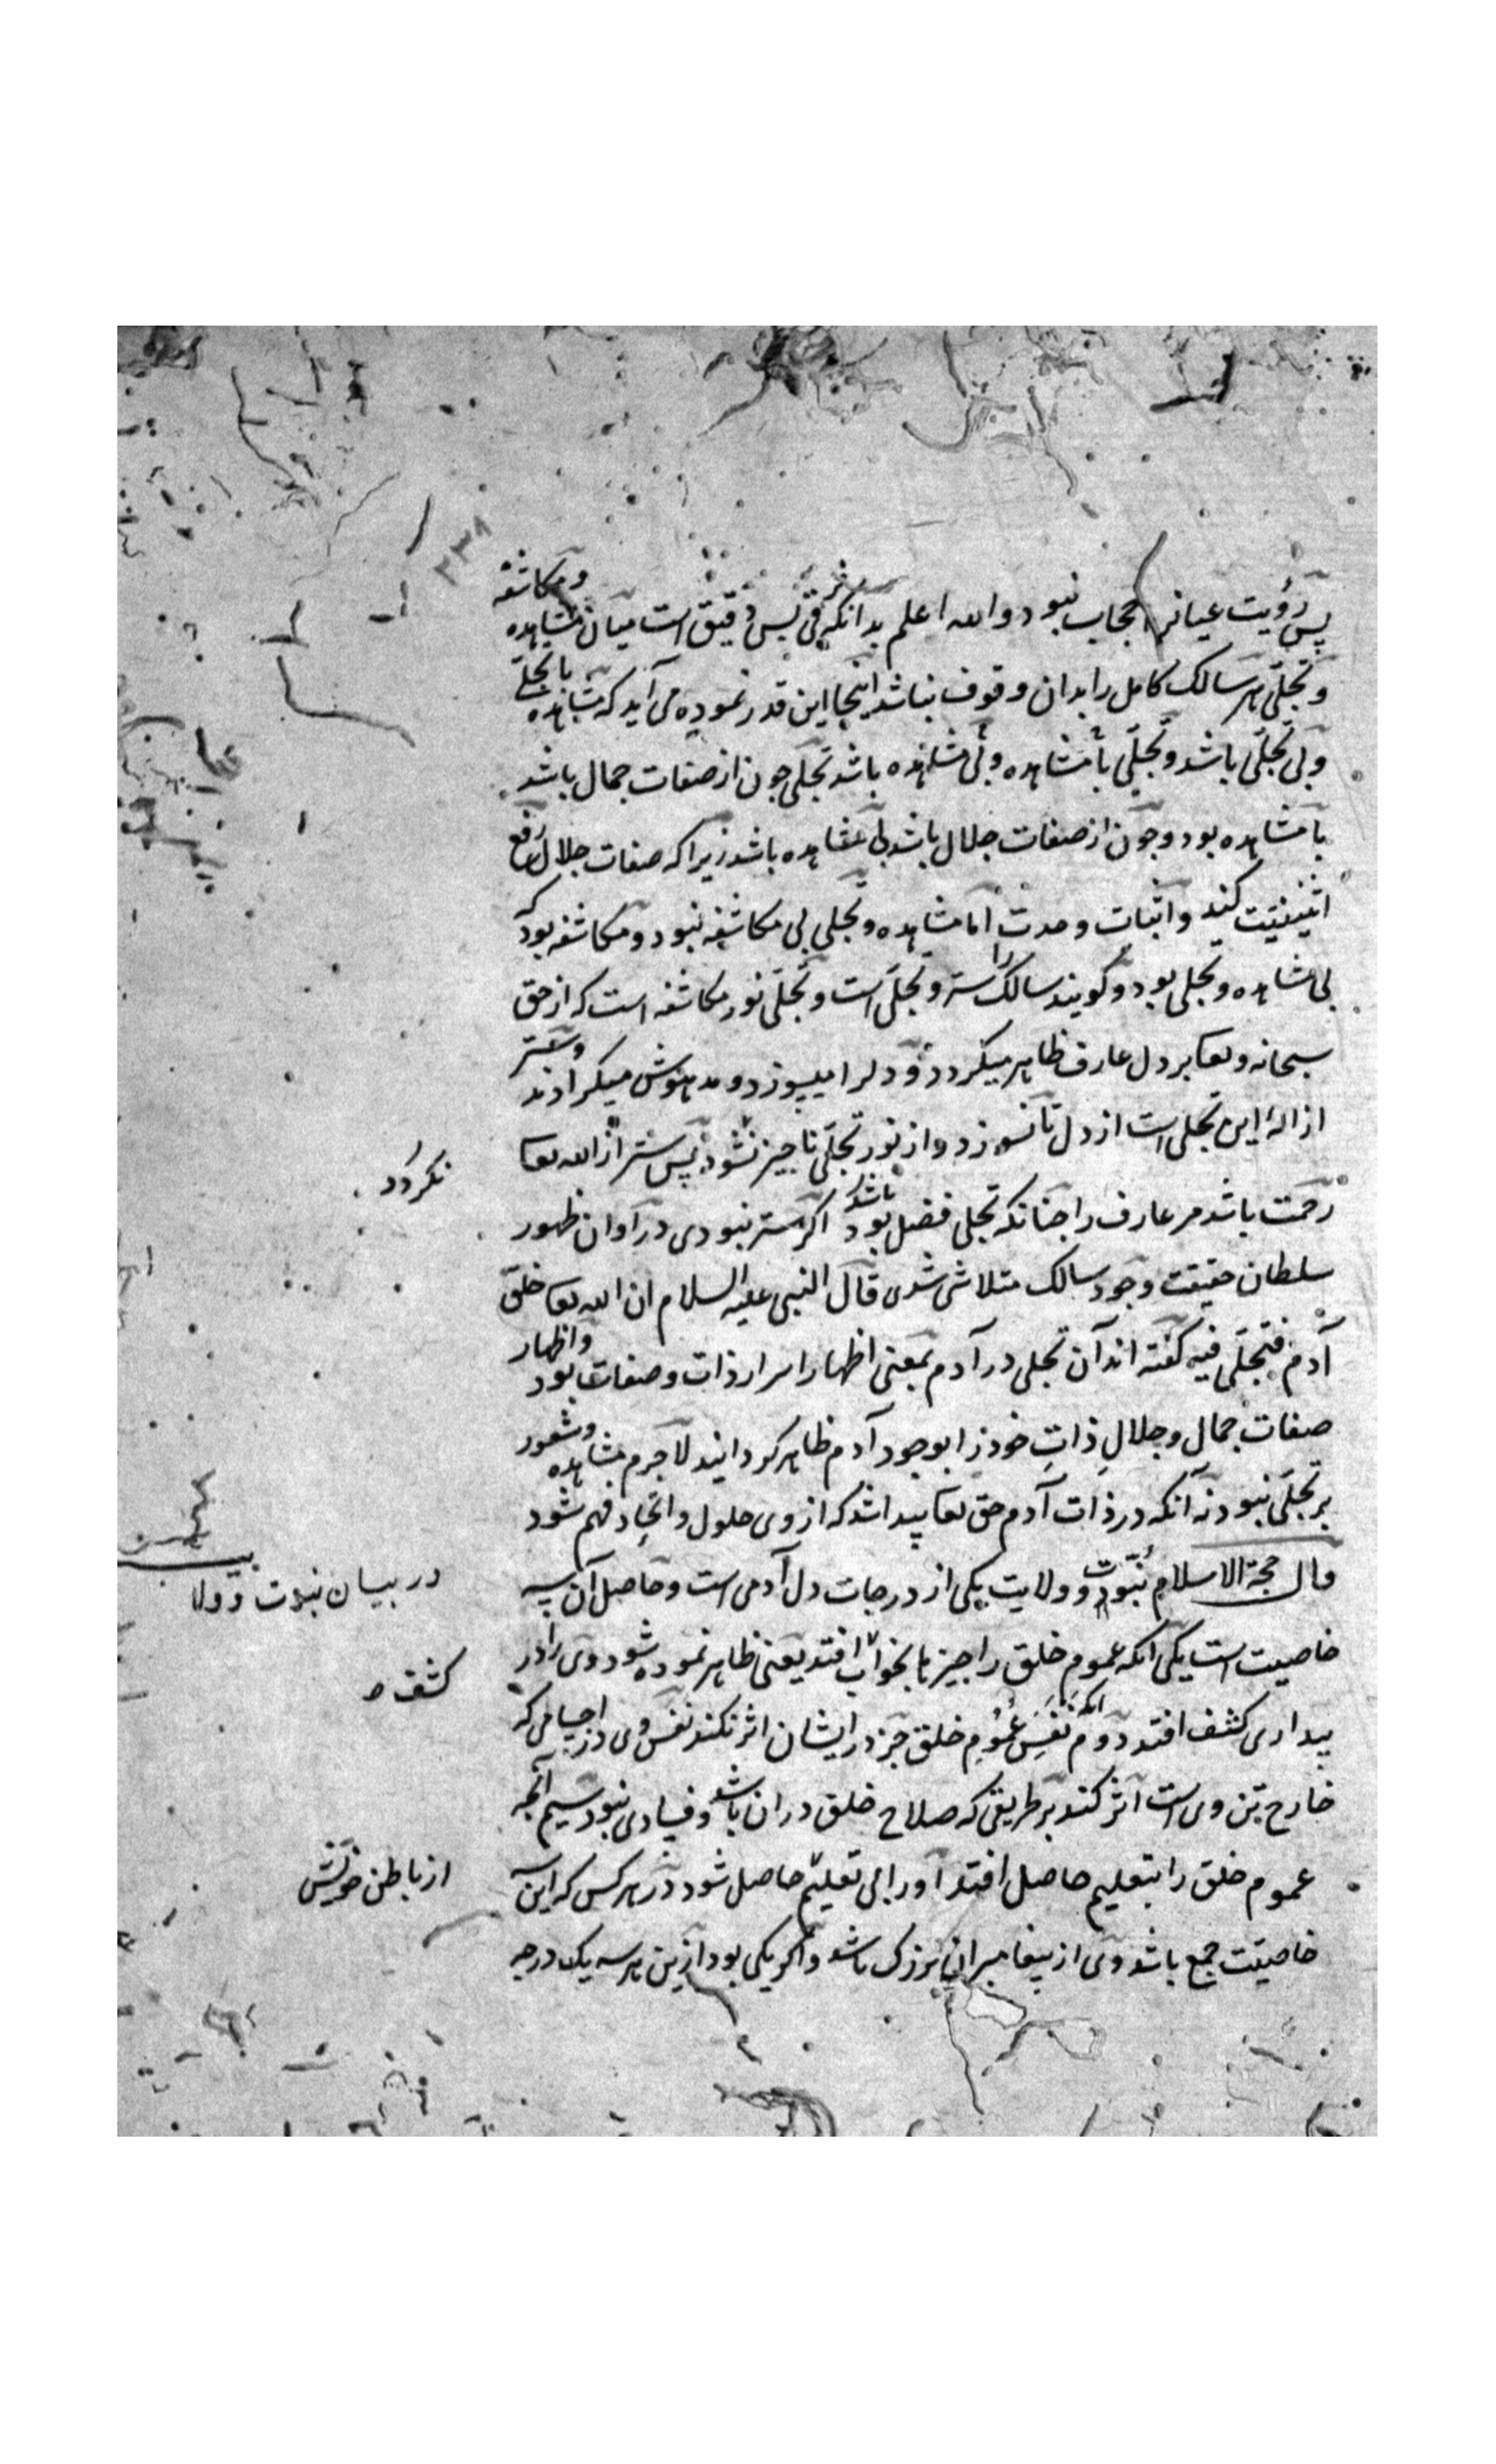 ۲۳۸
پس رؤیت عیانرا حجاب نبود و الله اعلم بدانکه فرقی بس دقیق است میان مشاهده و مکاشفه
و تجلّی هر سالک کامل را بدان وقوف نباشد اینجا این قدر نموده می آید که مشاهده با تجلّی
و بی تجلّی باشد و تجلّی با مشاهده و بی مشاهده باشد تجلّی جون از صفات جمال باشد
با مشاهده بود و جون از صفات جلال باشد بی مشاهده باشد زیرا که صفات جلال رافع
اثنینیّت کند و اثبات وحدت امّا مشاهده و تجلی بی مکاشفه نبود و مکاشفه بود که
بی مشاهده و تجلی بود و کویند سالک را ستر و تجلّی است و تجلّی نور مکاشفه است که از حق
سبحانه و تعا بر دل عارف ظاهر میکردد و دلرا میسوزد و مدهوش میکرداند و ستر
ازالۀ این تجلی است از دل تا نسوزد و از نور تجلّی ناجیز نشود پس ستر از الله تعا
نکردد
رحمت باشد مر عارف را جنانکه تجلی فضل بود باشد اکر ستر نبودی در اوان ظهور
سلطان حقیقت وجود سالک متلاشی شدی قال النبی علیه السلام ان الله تعا خلق
آدم فتجلّی فیه کفته اند آن تجلی در آدم بمعنی اظهار اسرار ذات و صفات بود و اظهار
صفات جمال و جلالِ ذاتِ خود را بوجود آدم ظاهر کردانید لاجرم مشاهده و شعور
بر تجلّی نبود نه آنکه در ذات آدم حق تعا پیدا شد که از وی حلول و اتّحاد فهم شود
قال حجة الاسلام نبوّت و ولایت یکی از درجات دل آدمی است و حاصل آن سه
در بیان نبوت و ولا
خاصیت است یکی انکه عموم خلق را جیزها بخواب افتد یعنی ظاهر نموده شود وی را در
کشف
بیداری کشف افتد دوم انکه نفسِ عُمُومِ خلق جز در ایشان اثر نکند نفس وی در اجسامی که
خارج تن وی است اثر کند بر طریقی که صلاح خلق در ان باشد و فسادی نبود سیم آنجه
عموم خلق را بتعلیم حاصل افتد او را بی تعلیم حاصل شود در هر کس که این سه
از باطن خویش
خاصیّت جمع باشد وی از پیغامبران بزرک باشد و اکر یکی بود ازین هر سه یک درجه